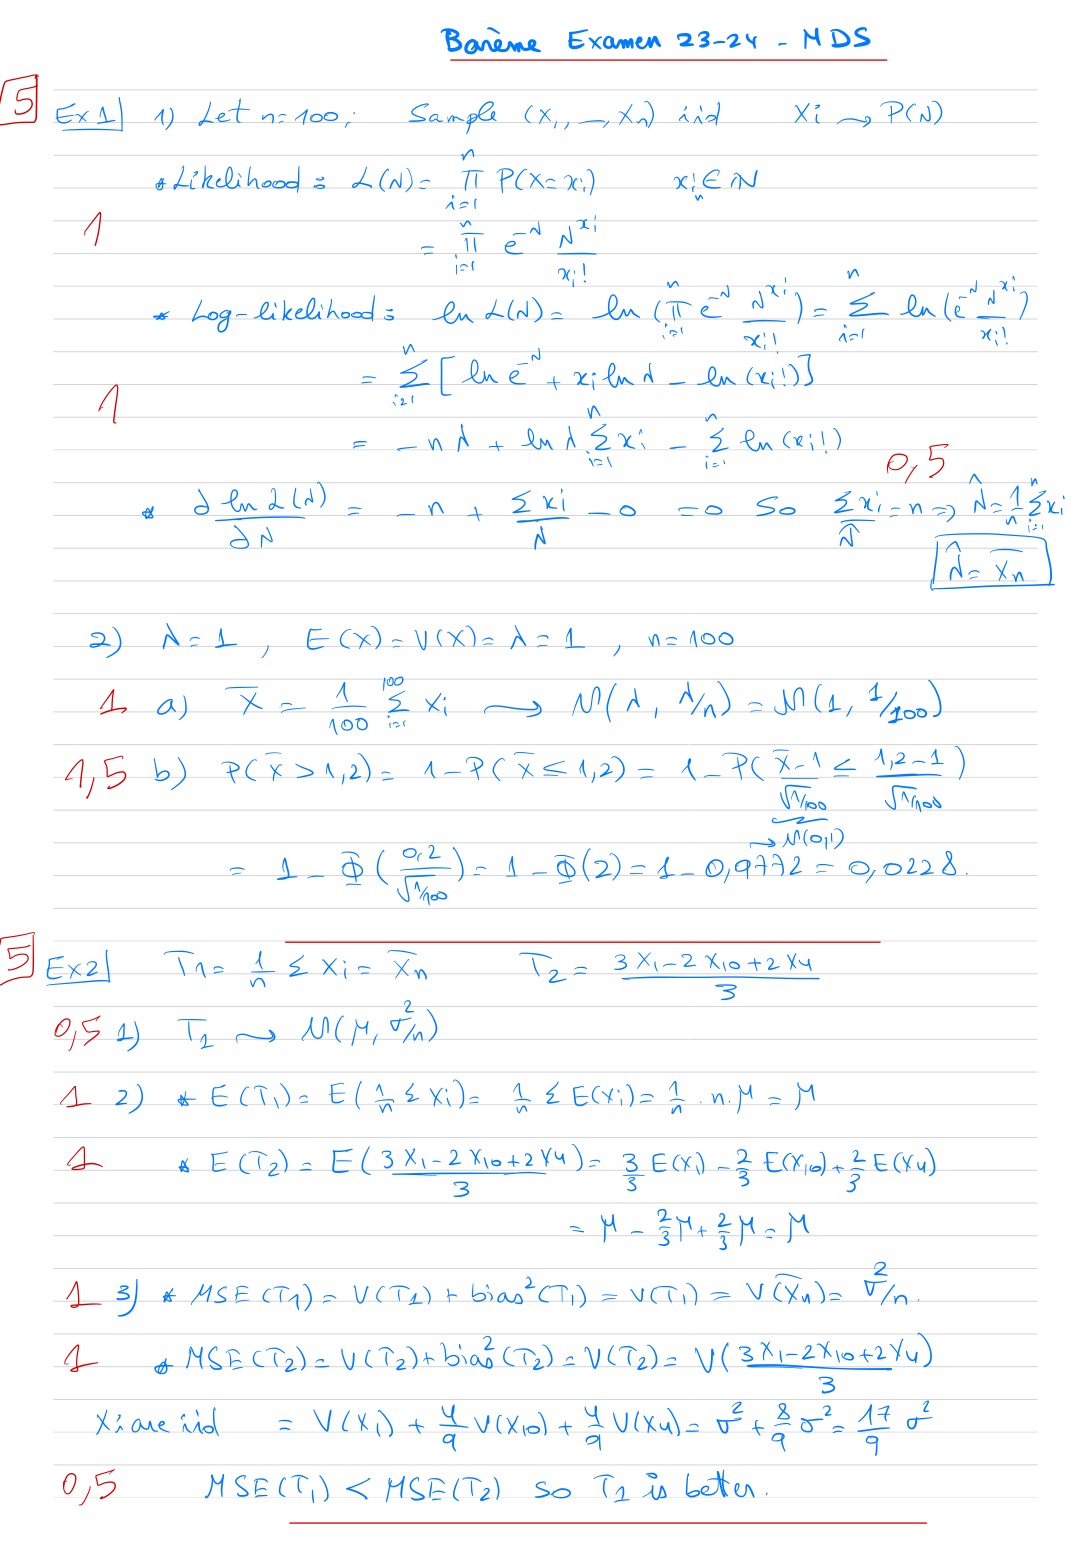 Barème Examen 23-24 - MDS
5 Ex1| 1) Let n=100; Sample (X₁, _, Xₙ) iid Xi ⟶ P(λ)
* Likelihood: L(λ) = ∏ᵢ₌₁ⁿ P(X=xᵢ) xᵢ ∈ ℕ
1 = ∏ᵢ₌₁ⁿ e^(-λ) λ^(xᵢ)/xᵢ!
* Log-likelihood: ln L(λ) = ln (∏ᵢ₌₁ⁿ e^(-λ) λ^(xᵢ)/xᵢ!) = Σᵢ₌₁ⁿ ln (e^(-λ) λ^(xᵢ)/xᵢ!)
1 = Σᵢ₌₁ⁿ [ln e^(-λ) + xᵢ ln λ - ln (xᵢ!)]
= -nλ + ln λ Σᵢ₌₁ⁿ xᵢ - Σᵢ₌₁ⁿ ln (xᵢ!)
0,5
* ∂ ln L(λ)/∂λ = -n + Σxᵢ/λ - 0 = 0 So Σxᵢ/λ̂ = n => λ̂ = 1/n Σᵢ₌₁ⁿ xᵢ
λ̂ = X̄ₙ
2) λ = 1, E(X) = V(X) = λ = 1, n = 100
1 a) X̄ = 1/100 Σᵢ₌₁¹⁰⁰ Xᵢ ⟶ N(λ, λ/n) = N(1, 1/100)
1,5 b) P(X̄ > 1,2) = 1 - P(X̄ ≤ 1,2) = 1 - P((X̄-1)/√(1/100) ≤ (1,2-1)/√(1/100))
→ N(0,1)
= 1 - Φ(0,2/√(1/100)) = 1 - Φ(2) = 1 - 0,9772 = 0,0228.
5 Ex2| T₁ = 1/n Σ Xi = X̄ₙ T₂ = (3X₁ - 2X₁₀ + 2X₄)/3
0,5 1) T₁ ⟶ N(μ, σ²/n)
1 2) * E(T₁) = E(1/n Σ Xi) = 1/n Σ E(Xi) = 1/n . n . μ = μ
1 * E(T₂) = E((3X₁ - 2X₁₀ + 2X₄)/3) = 3/3 E(X₁) - 2/3 E(X₁₀) + 2/3 E(X₄)
= μ - 2/3 μ + 2/3 μ = μ
1 3) * MSE(T₁) = V(T₁) + bias²(T₁) = V(T₁) = V(X̄ₙ) = σ²/n.
1 * MSE(T₂) = V(T₂) + bias²(T₂) = V(T₂) = V((3X₁ - 2X₁₀ + 2X₄)/3)
Xi are iid = V(X₁) + 4/9 V(X₁₀) + 4/9 V(X₄) = σ² + 8/9 σ² = 17/9 σ²
0,5 MSE(T₁) < MSE(T₂) so T₁ is better.